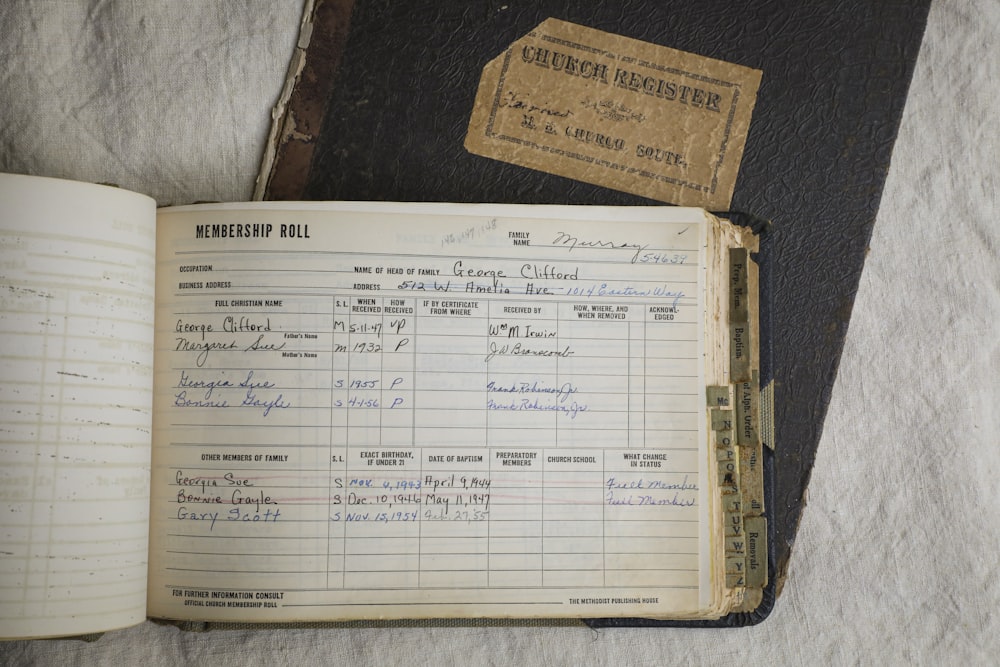 CHURCH REGISTER
M. E. CHURCH, SOUTH.
MEMBERSHIP ROLL
FAMILY NAME Murray
54639
OCCUPATION NAME OF HEAD OF FAMILY George Clifford
BUSINESS ADDRESS ADDRESS 512 W. Amelia Ave. - 1014 Eastern Way
FULL CHRISTIAN NAME S. L. WHEN RECEIVED HOW RECEIVED IF BY CERTIFICATE FROM WHERE RECEIVED BY HOW, WHERE, AND WHEN REMOVED ACKNOWL- EDGED
George Clifford M 5-11-47 VP Wm M Irwin
Father's Name
Margaret Sue m 1932 P J W Branscomb
Mother's Name
Georgia Sue S 1955 P Frank Robinson, Jr.
Bonnie Gayle S 4-1-56 P Frank Robinson, Jr.
OTHER MEMBERS OF FAMILY S. L. EXACT BIRTHDAY, IF UNDER 21 DATE OF BAPTISM PREPARATORY MEMBERS CHURCH SCHOOL WHAT CHANGE IN STATUS
Georgia Sue S Nov. 4, 1943 April 9, 1944 Full Member
Bonnie Gayle S Dec. 10, 1946 May 11, 1947 Full Member
Gary Scott S Nov. 15, 1954 Feb. 27, 55
FOR FURTHER INFORMATION CONSULT
OFFICIAL CHURCH MEMBERSHIP ROLL THE METHODIST PUBLISHING HOUSE
Prep. Mem.
Baptism
of Alph. Order
Mc
N
O
P
Q
R
T
U
V
W
Y
Z
Removals